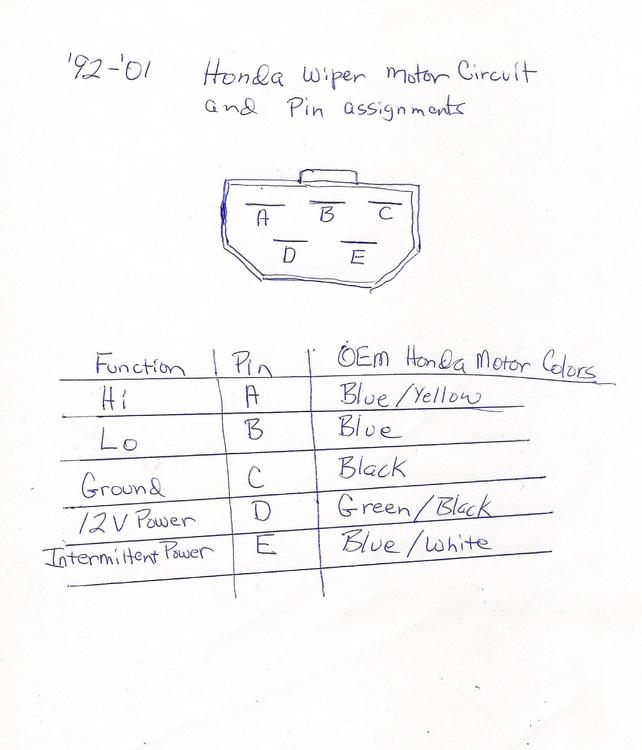 '92-'01 Honda Wiper Motor Circuit
and Pin assignments
A B C
D E
Function Pin OEM Honda Motor Colors
Hi A Blue/Yellow
Lo B Blue
Ground C Black
12V Power D Green/Black
Intermittent Power E Blue/White